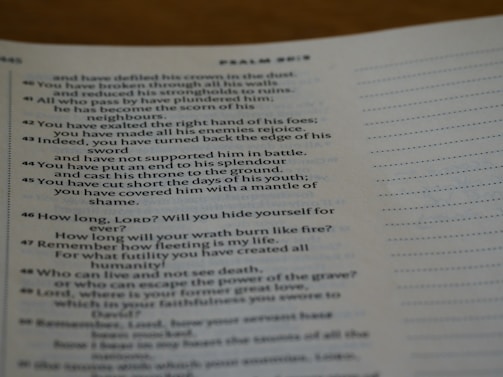 445
PSALM 90:3
and have defiled his crown in the dust.
40 You have broken through all his walls
and reduced his strongholds to ruins.
41 All who pass by have plundered him;
he has become the scorn of his
neighbours.
42 You have exalted the right hand of his foes;
you have made all his enemies rejoice.
43 Indeed, you have turned back the edge of his
sword
and have not supported him in battle.
44 You have put an end to his splendour
and cast his throne to the ground.
45 You have cut short the days of his youth;
you have covered him with a mantle of
shame.
46 How long, LORD? Will you hide yourself for
ever?
How long will your wrath burn like fire?
47 Remember how fleeting is my life.
For what futility you have created all
humanity!
48 Who can live and not see death,
or who can escape the power of the grave?
49 Lord, where is your former great love,
which in your faithfulness you swore to
David?
50 Remember, Lord, how your servant has
been mocked,
how I bear in my heart the taunts of all the
nations,
51 the taunts with which your enemies, LORD,